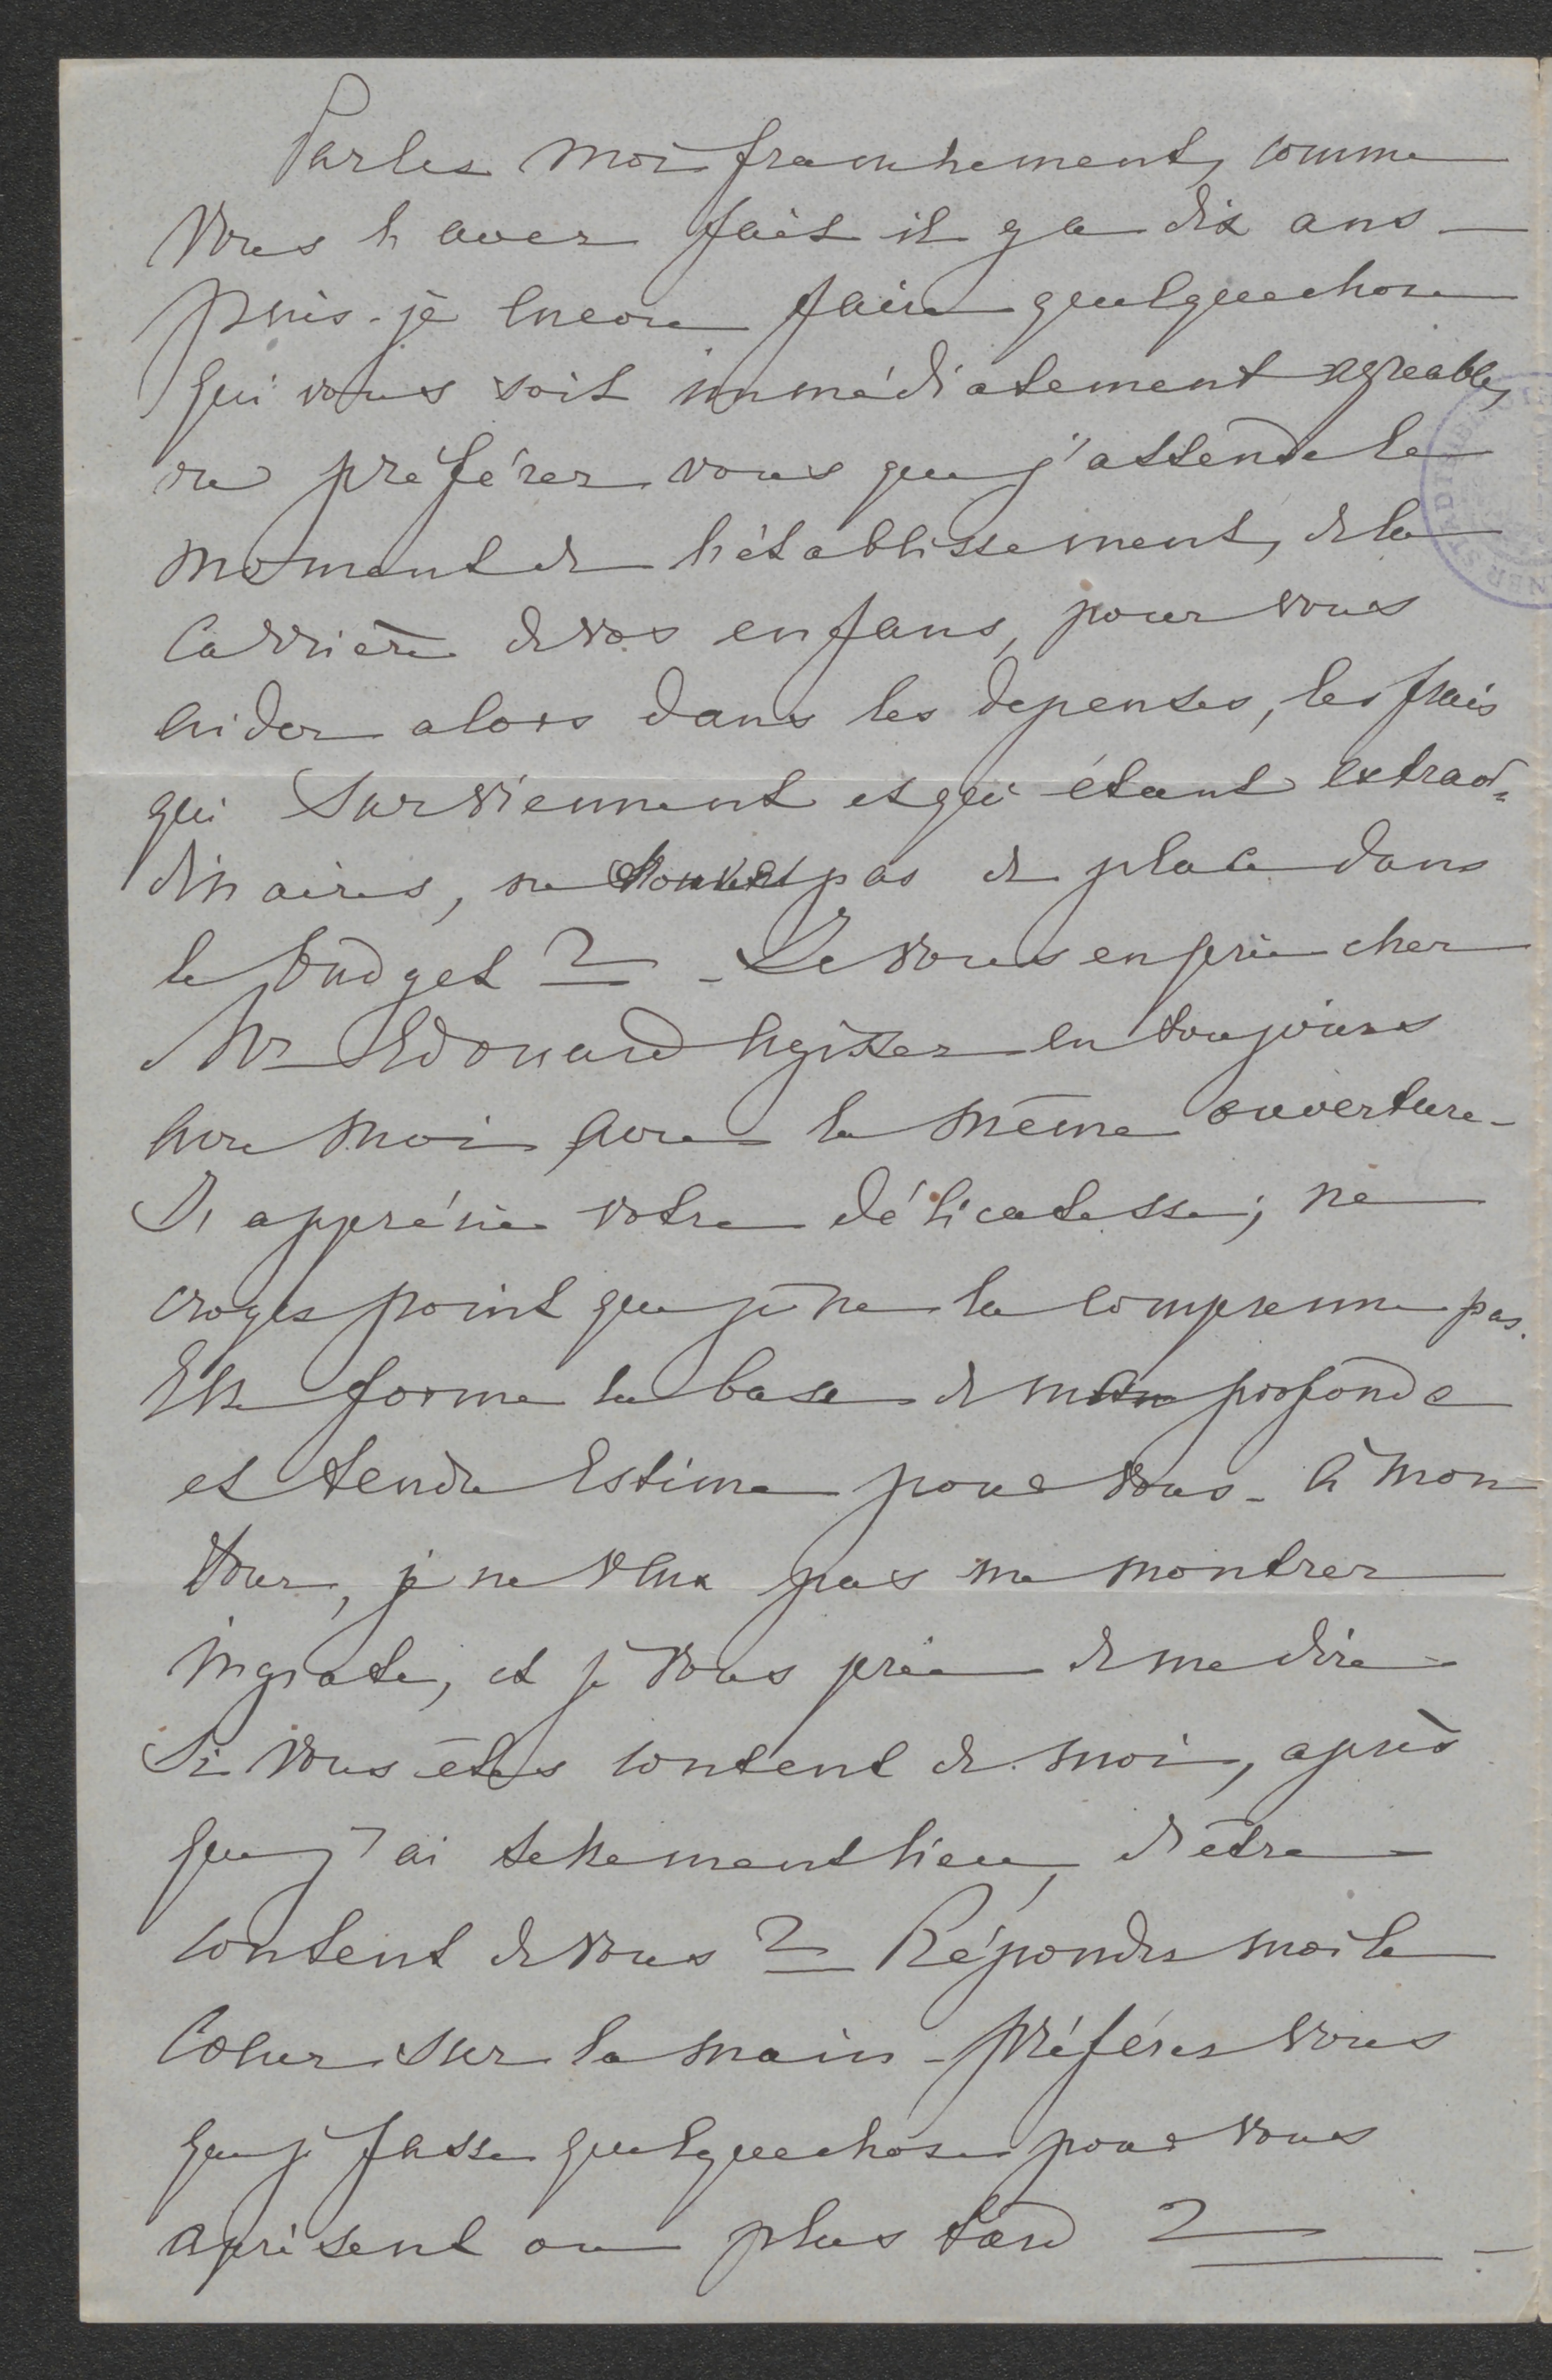 Parlez moi franchement, comme
vous l'avez fait il y a dix ans —
puis-je encore faire quelquechose
qui vous soit immédiatement agréable,
ou préférez vous que j'attende le
moment de l'établissement, de la
carrière de vos enfans, pour vous
aider alors dans les depenses, les frais
qui surviennent et qui étant extraor=
dinaires, ne trouvent pas de place dans
le budget ? - Je vous en prie cher
Mr Edouard agissez en toujours
avec moi avec la même ouverture -
J'apprécie votre délicatesse; ne
croyez point que je ne la comprenne pas.
Elle forme la base de mon profonde
et tendre estime pour vous - à mon
tour, je ne veux pas me montrer
ingrate, et je vous prie de me dire
si vous êtes content de moi, après
que j'ai tellement lieu d'être
content de vous ? Répondez moi le
coeur sur la main - préférez vous
que je fasse quelquechose pour vous
aprésent ou plus tard ? —